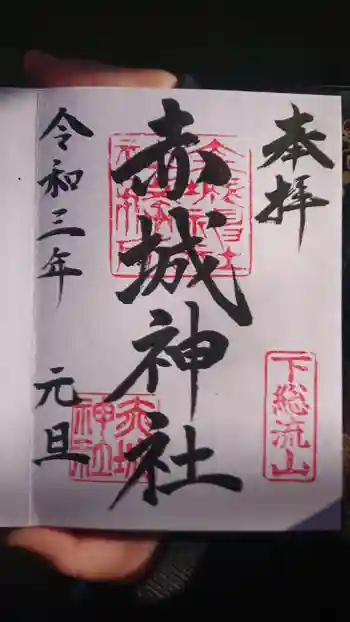 奉拝
下総流山
赤城神社
赤城神社
令和三年 元旦